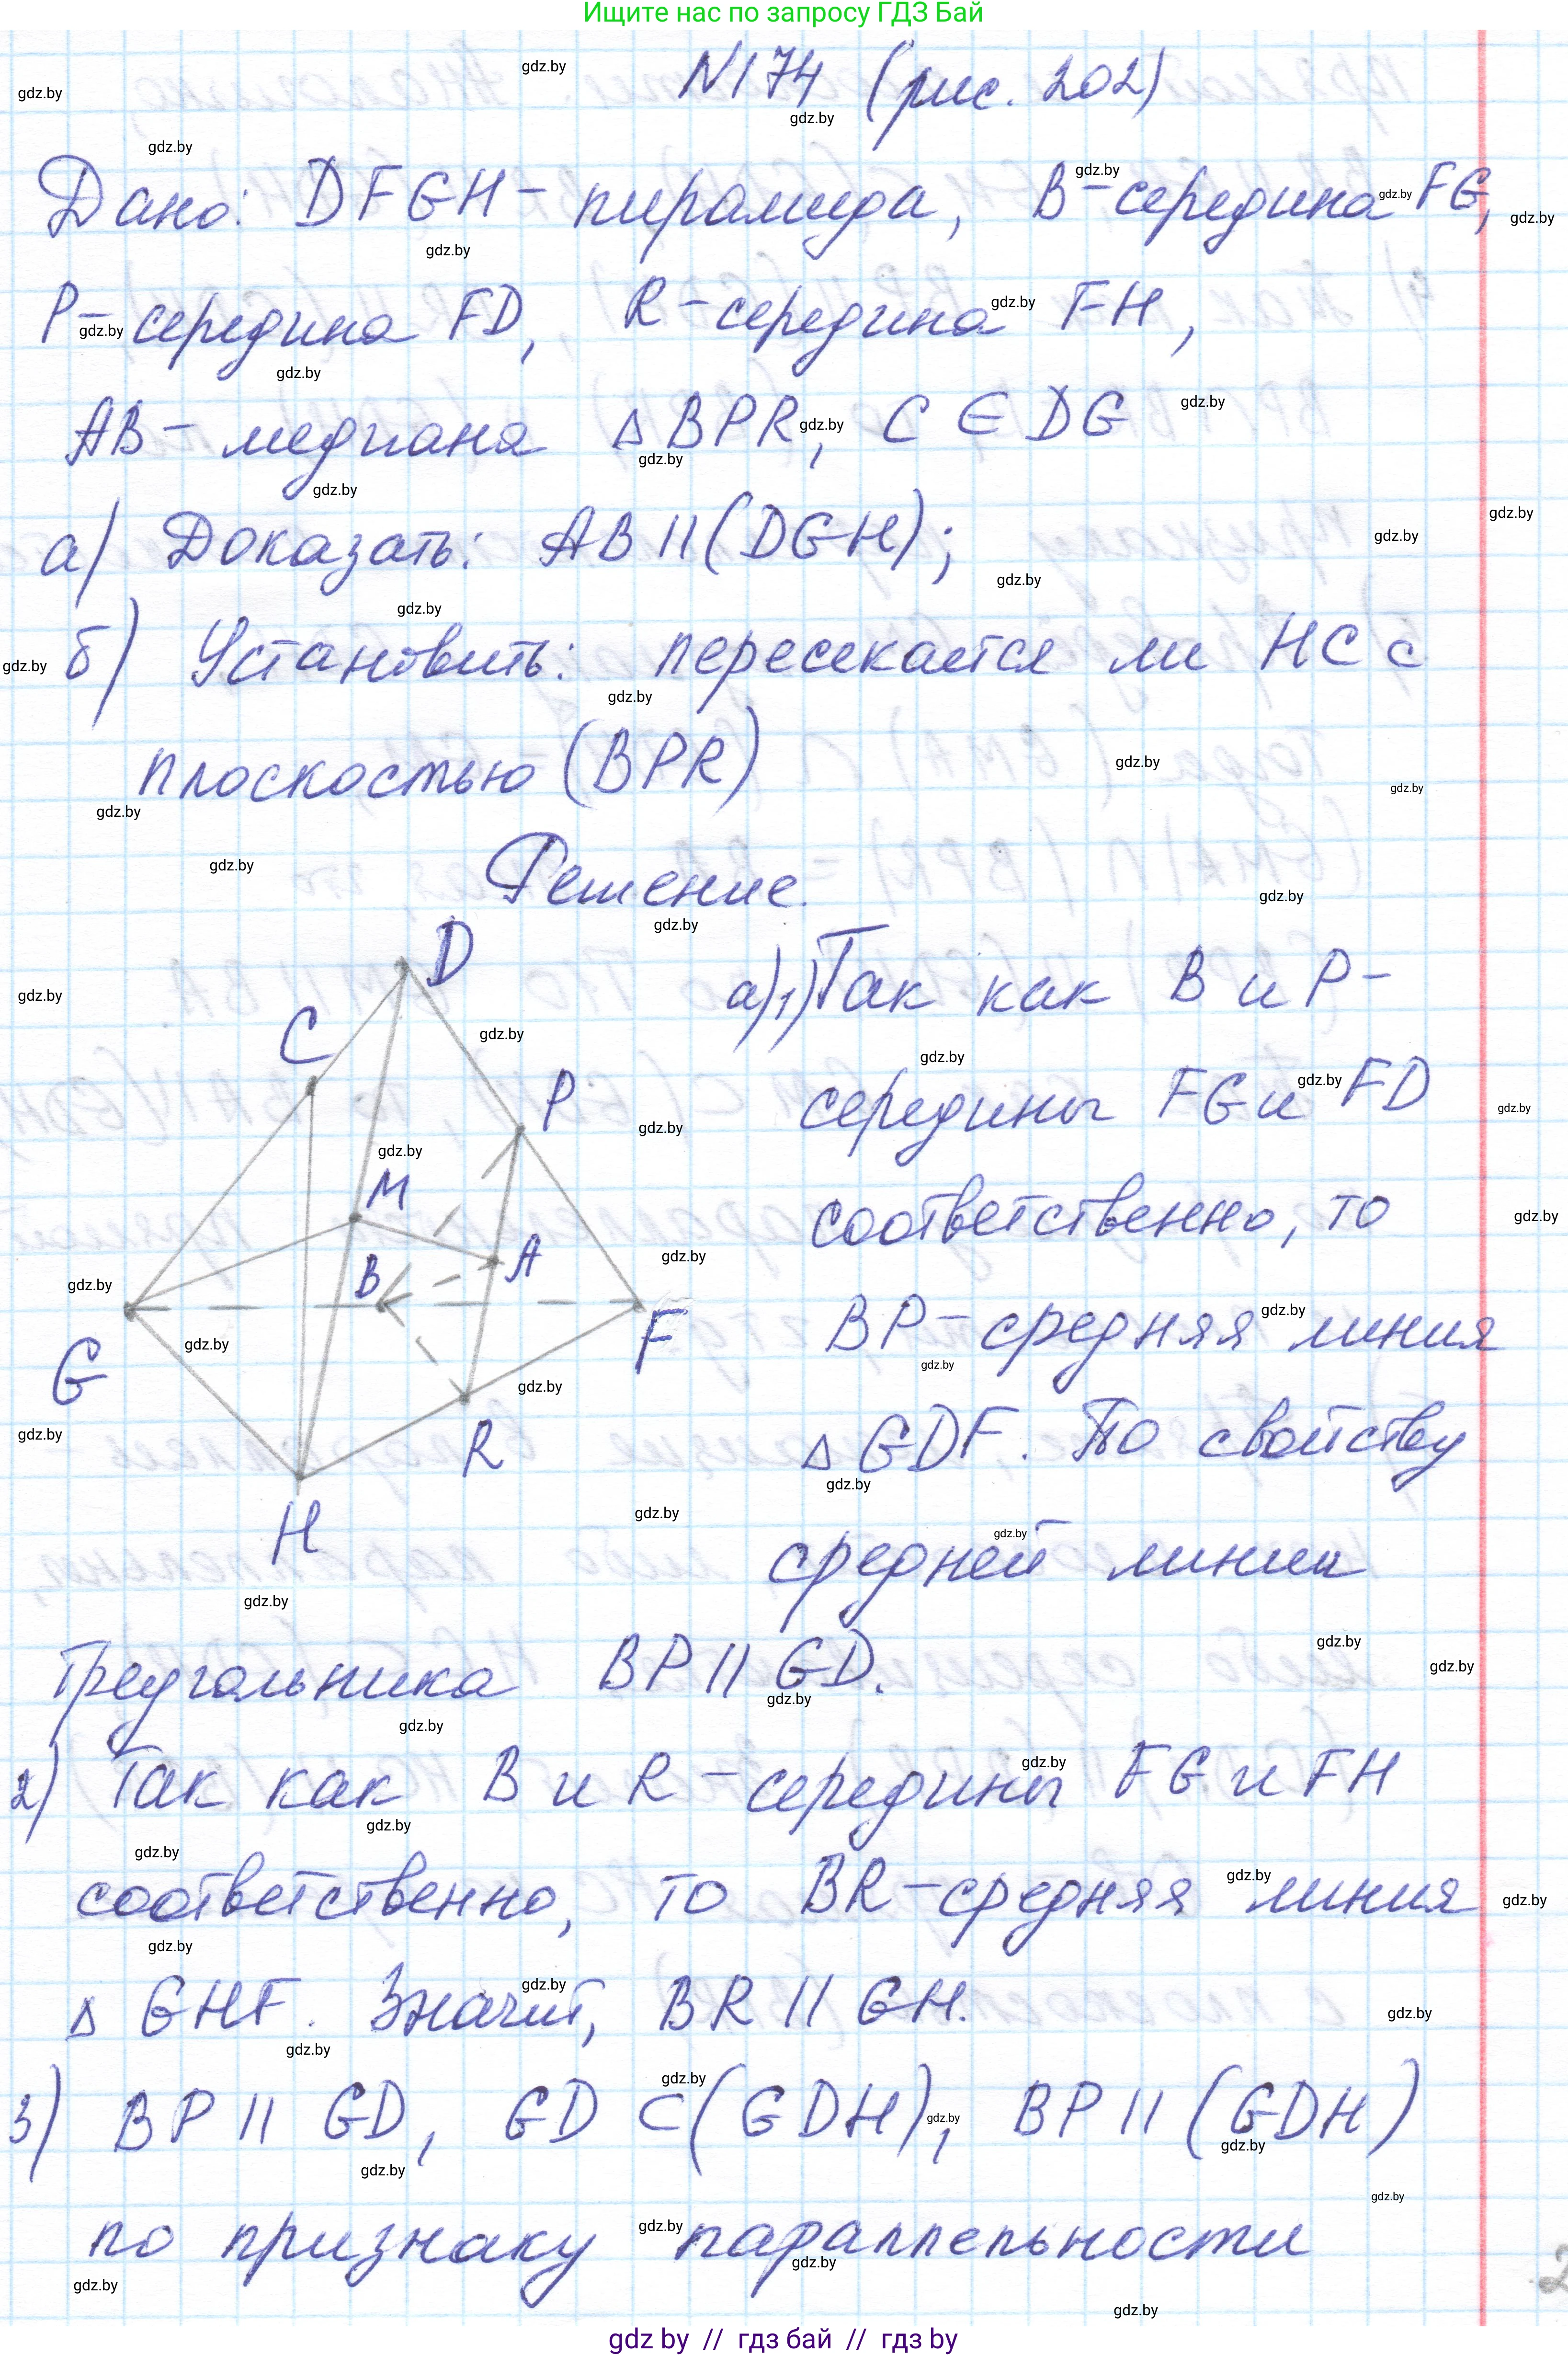 Ищите нас по запросу ГДЗ Бай
N174 (рис. 202)
Дано: DFGH - пирамида, B - середина FG,
P - середина FD, R - середина FH,
AB - медиана Δ BPR, C ∈ DG
а) Доказать: AB || (DGH);
б) Установить: пересекается ли HC с
плоскостью (BPR)
Решение.
D
C
P
M
B
A
G
F
R
H
а) 1) Так как B и P -
середины FG и FD
соответственно, то
BP - средняя линия
Δ GDF. По свойству
средней линии
треугольника BP || GD.
2) Так как B и R - середины FG и FH
соответственно, то BR - средняя линия
Δ GHF. Значит, BR || GH.
3) BP || GD, GD ⊂ (GDH), BP || (GDH)
по признаку параллельности
2
gdz by // гдз бай // гдз by